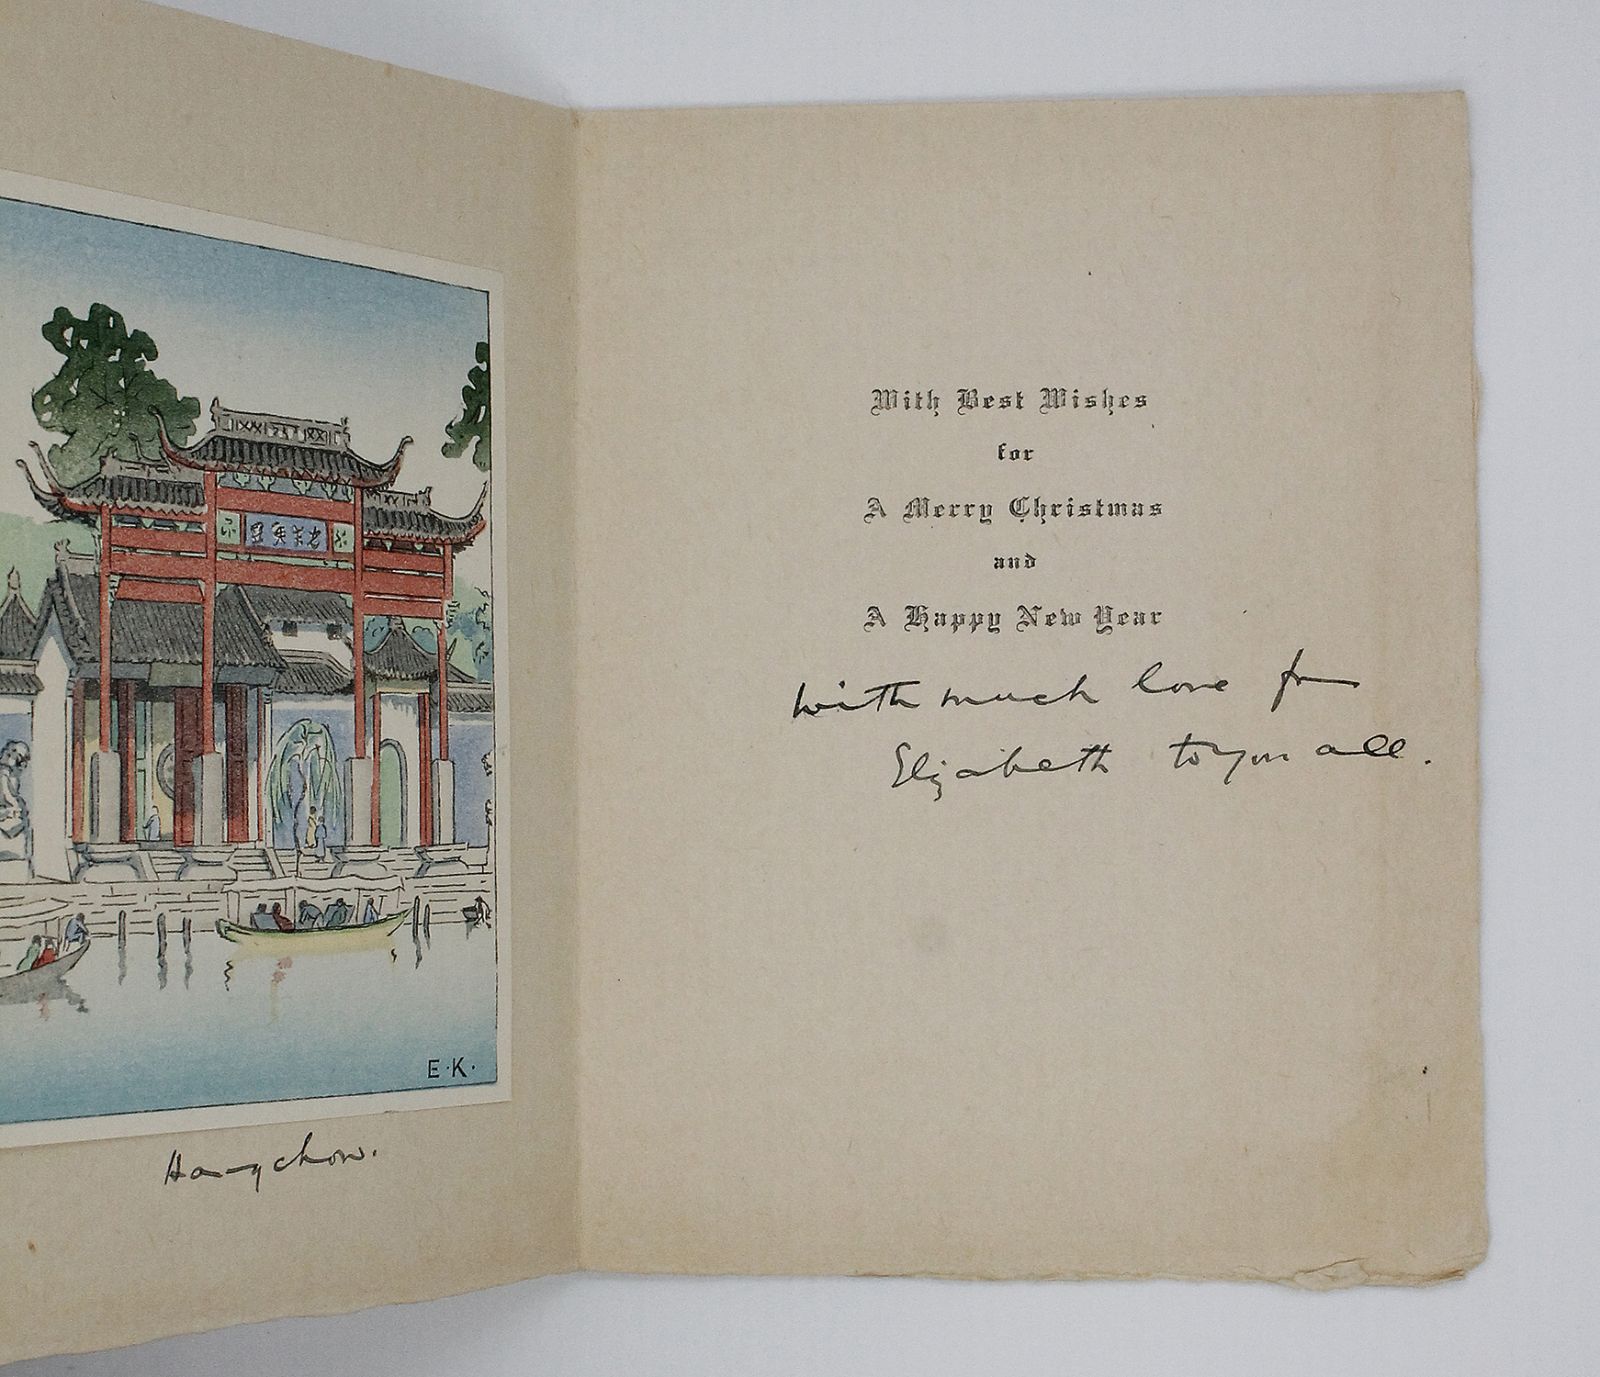 E·K·
Hangchow.
With Best Wishes
for
A Merry Christmas
and
A Happy New Year
with much love fm
Elizabeth to you all.